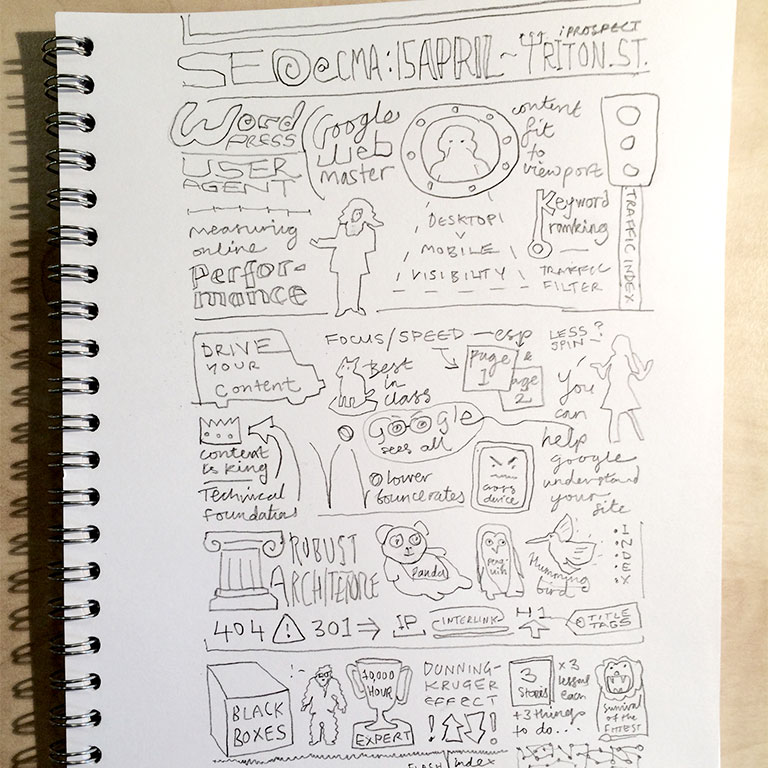 iPROSPECT
SEO@CMA:15APRIL~TRITON.ST.
WordPRESS
USER
AGENT
Google
Web
master
content
fit
to
viewport
TRAFFIC INDEX
measuring
online
Perfor-
mance
DESKTOP
V
MOBILE
VISIBILITY
Keyword
ranking
TRAFFIC
FILTER
DRIVE
YOUR
Content
FOCUS/SPEED — esp
Page
1
&
Page
2
Best
in
class
LESS?
SPIN—
You
can
help
google
understand
your
site
content
is king
Technical
foundations
Google
sees all
lower
bounce rates
device
ROBUST
ARCHITECTURE
Panda
Penguin
Humming
bird
INDEX
404 ! 301 ⇒ IP INTERLINK H1 TITLE
TAGS
BLACK
BOXES
10,000
HOUR
EXPERT
DUNNING-
KRUGER
EFFECT
! !
3
Stories
x3
lessons
each
+3 things
to do...
Survival
of the
FITTEST
FLASH index